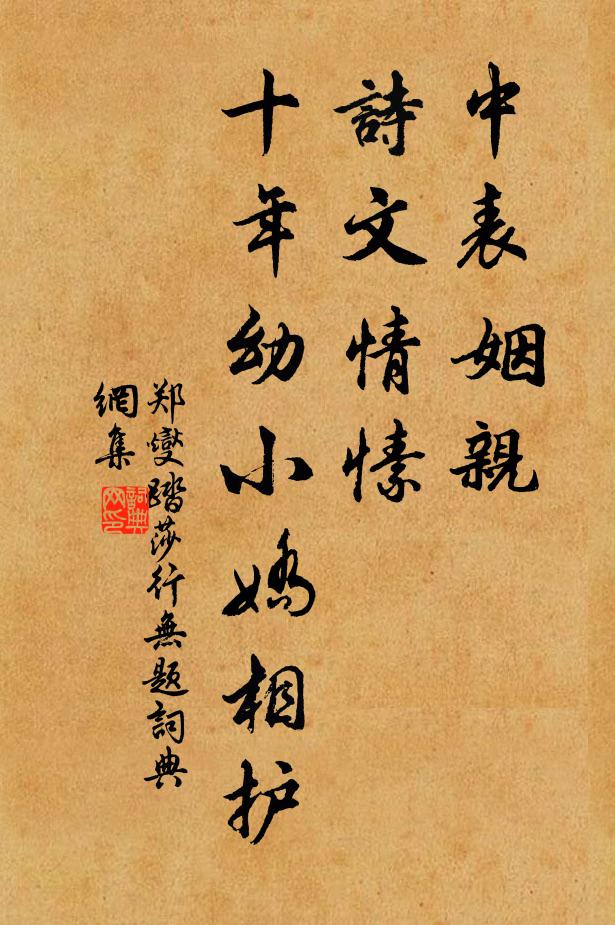 中表姻親
詩文情愫
十年幼小嬌相护
郑燮踏莎行無题詞典
網集
詞典
网印